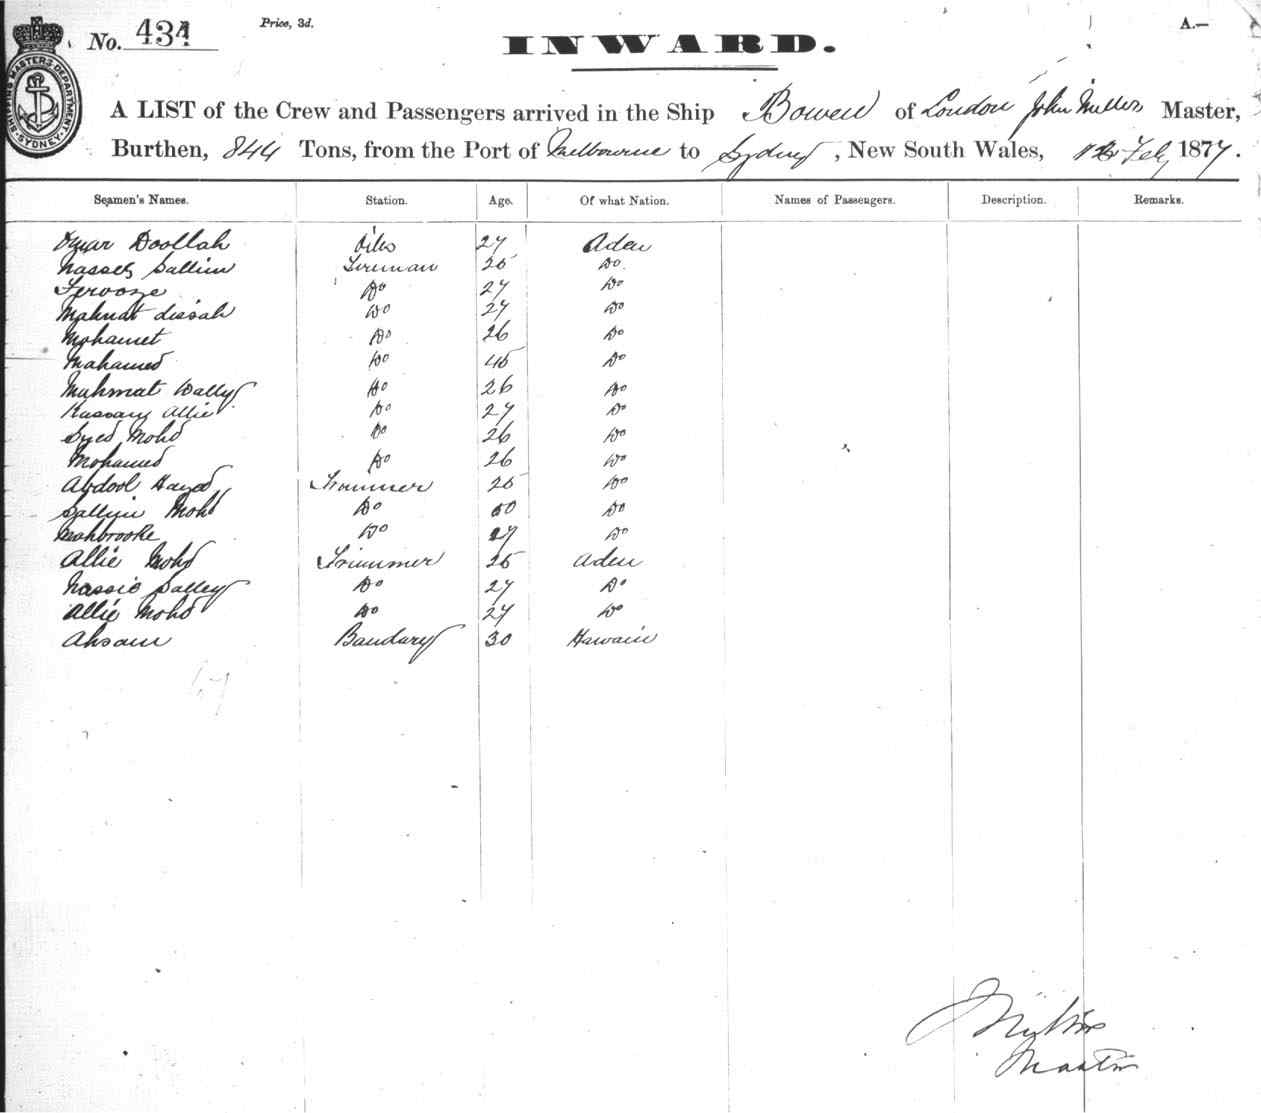 No. 434 Price, 3d. A.—
INWARD.
SHIPPING MASTERS DEPARTMENT SYDNEY
A LIST of the Crew and Passengers arrived in the Ship Bowen of London John Miller Master,
Burthen, 844 Tons, from the Port of Melbourne to Sydney, New South Wales, Feb 1877.
Seamen's Names. Station. Age. Of what Nation. Names of Passengers. Description. Remarks.
Omar Doollah 27 Aden
Sallim Fireman 25 Do
Ferooze Do 27 Do
Mahmat Do 27 Do
Mohamet Do 26 Do
Mahamed Do 45 Do
Mahmat Wally Do 26 Do
Kassany Allie Do 27 Do
Syed Mohd Do 26 Do
Mohamed Do 26 Do
Abdool Hayed Trimmer 25 Do
Sallim Mohd Do 50 Do
Mahbrooke Do 27 Do
Allie Mohd Trimmer 25 Aden
Nassie Salley Do 27 Do
Allie Mohd Do 27 Do
Ahsam Bandary 30
67
Miller
Master